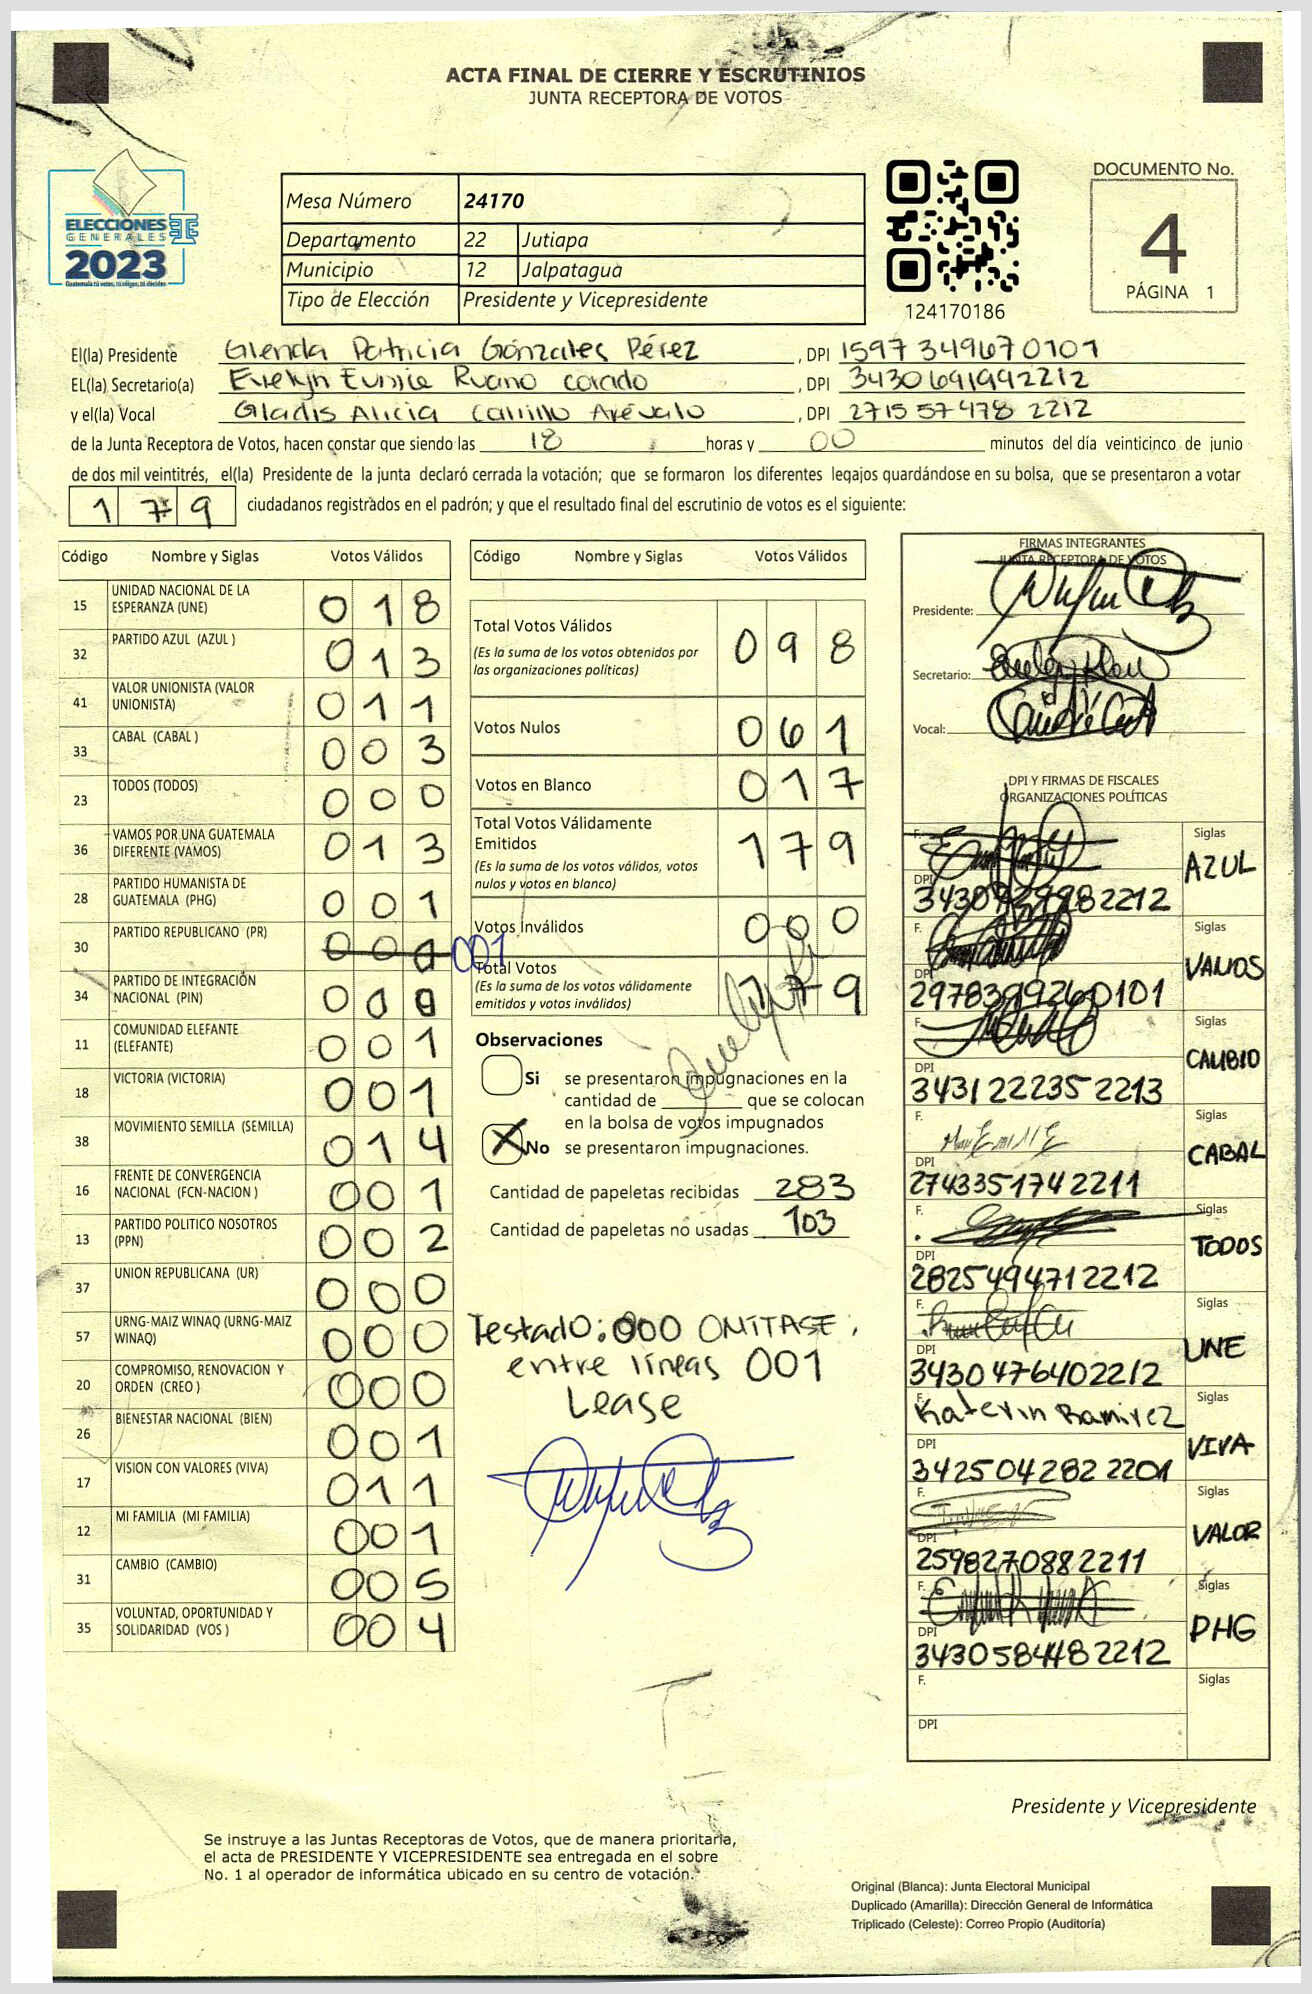 ACTA FINAL DE CIERRE Y ESCRUTINIOS
JUNTA RECEPTORA DE VOTOS
ELECCIONES
GENERALES
2023
Guatemala tú votas, tú eliges, tú decides
Mesa Número 24170
Departamento 22 Jutiapa
Municipio 12 Jalpatagua
Tipo de Elección Presidente y Vicepresidente
124170186
DOCUMENTO No.
4
PÁGINA 1
El(la) Presidente Glenda Patricia Gónzales Pérez , DPI 1597349670101
EL(la) Secretario(a) Evelyn Eunice Ruano , DPI 3430691992212
y el(la) Vocal Gladis Alicia Carrillo Arévalo , DPI 2715574782212
de la Junta Receptora de Votos, hacen constar que siendo las 18 horas y 00 minutos del día veinticinco de junio
de dos mil veintitrés, el(la) Presidente de la junta declaró cerrada la votación; que se formaron los diferentes legajos guardándose en su bolsa, que se presentaron a votar
179 ciudadanos registrados en el padrón; y que el resultado final del escrutinio de votos es el siguiente:
Código Nombre y Siglas Votos Válidos
15 UNIDAD NACIONAL DE LA
ESPERANZA (UNE) 018
32 PARTIDO AZUL (AZUL ) 013
41 VALOR UNIONISTA (VALOR
UNIONISTA) 011
33 CABAL (CABAL ) 003
23 TODOS (TODOS) 000
36 VAMOS POR UNA GUATEMALA
DIFERENTE (VAMOS) 013
28 PARTIDO HUMANISTA DE
GUATEMALA (PHG) 001
30 PARTIDO REPUBLICANO (PR) 001
34 PARTIDO DE INTEGRACIÓN
NACIONAL (PIN) 000
11 COMUNIDAD ELEFANTE
(ELEFANTE) 001
18 VICTORIA (VICTORIA) 001
38 MOVIMIENTO SEMILLA (SEMILLA) 014
16 FRENTE DE CONVERGENCIA
NACIONAL (FCN-NACION ) 001
13 PARTIDO POLITICO NOSOTROS
(PPN) 002
37 UNION REPUBLICANA (UR) 000
57 URNG-MAIZ WINAQ (URNG-MAIZ
WINAQ) 000
20 COMPROMISO, RENOVACION Y
ORDEN (CREO ) 000
26 BIENESTAR NACIONAL (BIEN) 001
17 VISION CON VALORES (VIVA) 011
12 MI FAMILIA (MI FAMILIA) 001
31 CAMBIO (CAMBIO) 005
35 VOLUNTAD, OPORTUNIDAD Y
SOLIDARIDAD (VOS ) 004
Código Nombre y Siglas Votos Válidos
Total Votos Válidos 098
(Es la suma de los votos obtenidos por
las organizaciones políticas)
Votos Nulos 061
Votos en Blanco 017
Total Votos Válidamente
Emitidos 179
(Es la suma de los votos válidos, votos
nulos y votos en blanco)
Votos Inválidos 000
Total Votos 179
(Es la suma de los votos válidamente
emitidos y votos inválidos)
Observaciones
Si se presentaron impugnaciones en la
cantidad de que se colocan
en la bolsa de votos impugnados
X No se presentaron impugnaciones.
Cantidad de papeletas recibidas 283
Cantidad de papeletas no usadas 103
Testado: 000 OMITASE,
entre líneas 001
Lease
FIRMAS INTEGRANTES
JUNTA RECEPTORA DE VOTOS
Presidente:
Secretario:
Vocal:
DPI Y FIRMAS DE FISCALES
ORGANIZACIONES POLÍTICAS
F. Siglas
AZUL
DPI
F. Siglas
VAMOS
DPI
2978399260101
F. Siglas
CAMBIO
DPI
3431222352213
F. Siglas
CABAL
DPI
2743351742211
F. Siglas
TODOS
DPI
2825494712212
F. Siglas
UNE
DPI
3430476402212
F. Siglas
Katerin Ramirez
VIVA
DPI
3425042822201
F. Siglas
VALOR
DPI
2598270882211
F. Siglas
PHG
DPI
3430584482212
F. Siglas
DPI
Presidente y Vicepresidente
Se instruye a las Juntas Receptoras de Votos, que de manera prioritaria,
el acta de PRESIDENTE Y VICEPRESIDENTE sea entregada en el sobre
No. 1 al operador de informática ubicado en su centro de votación.
Original (Blanca): Junta Electoral Municipal
Duplicado (Amarilla): Dirección General de Informática
Triplicado (Celeste): Correo Propio (Auditoría)